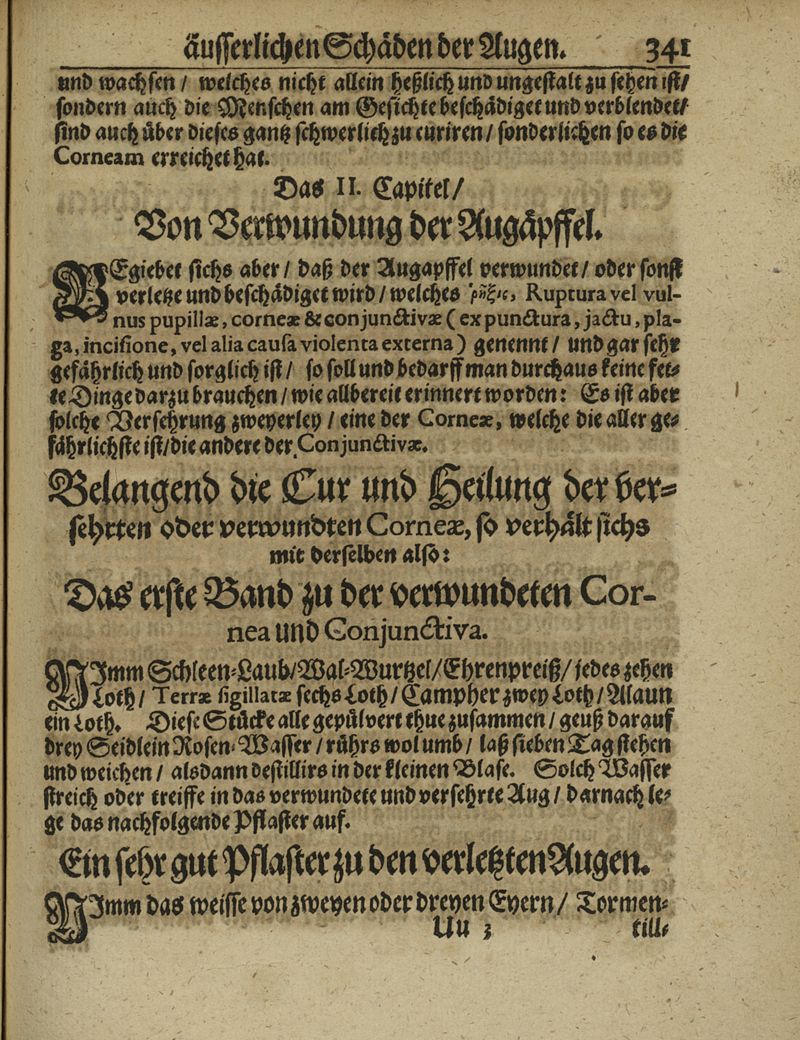 äusserlichen Schäden der Augen. 341
und wachsen / welches nicht allein heßlich und ungestalt zu sehen ist/
sondern auch die Menschen am Gesichte beschädiget und verblendet/
sind auch über dieses gantz schwerlich zu curiren / sonderlichen so es die
Corneam erreichet hat.
Das II. Capitel/
Von Verwundung der Augäpffel.
BEgiebet sichs aber / daß der Augapffel verwundet / oder sonst
verletze und beschädiget wird / welches ῥῆξις, Ruptura vel vul-
nus pupillæ, corneæ & conjunctivæ (ex punctura, jactu, pla-
ga, incisione, vel alia causa violenta externa) genennt / und gar sehr
gefährlich und sorglich ist / so soll und bedarff man durchaus keine fet-
te Dinge darzu brauchen / wie allbereit erinnert worden: Es ist aber
solche Versehrung zweyerley / eine der Corneæ, welche die aller ge-
fährlichste ist/die andere der Conjunctivæ.
Belangend die Cur und Heilung der ver-
sehrten oder verwundten Corneæ, so verhält sichs
mit derselben also:
Das erste Band zu der verwundeten Cor-
nea und Conjunctiva.
NImm Schleen-Laub/Wal-Wurtzel/Ehrenpreiß/jedes zehen
Loth / Terræ sigillatæ sechs Loth / Campher zwey Loth / Alaun
ein Loth. Diese Stücke alle gepülvert thue zusammen / geuß darauf
drey Seidlein Rosen-Wasser / rührs wol umb / laß sieben Tag stehen
und weichen / alsdann destillirs in der kleinen Blase. Solch Wasser
streich oder treiffe in das verwundete und versehrte Aug / darnach le-
ge das nachfolgende Pflaster auf.
Ein sehr gut Pflaster zu den verletzten Augen.
NImm das weisse von zweyen oder dreyen Eyern / Tormen-
Uu 3 till-